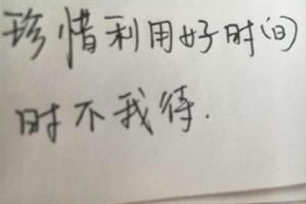 珍惜利用好时间
时不我待.